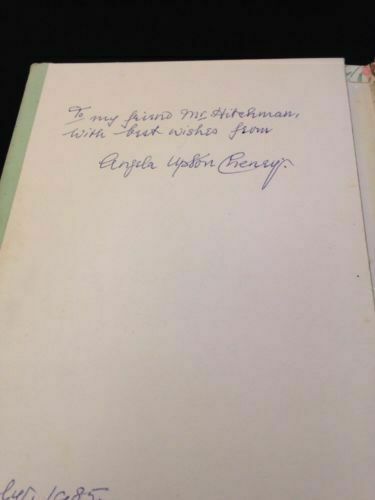 To my friend Mr Hitchman,
with best wishes from
Angela Upton Cheney.
1985.